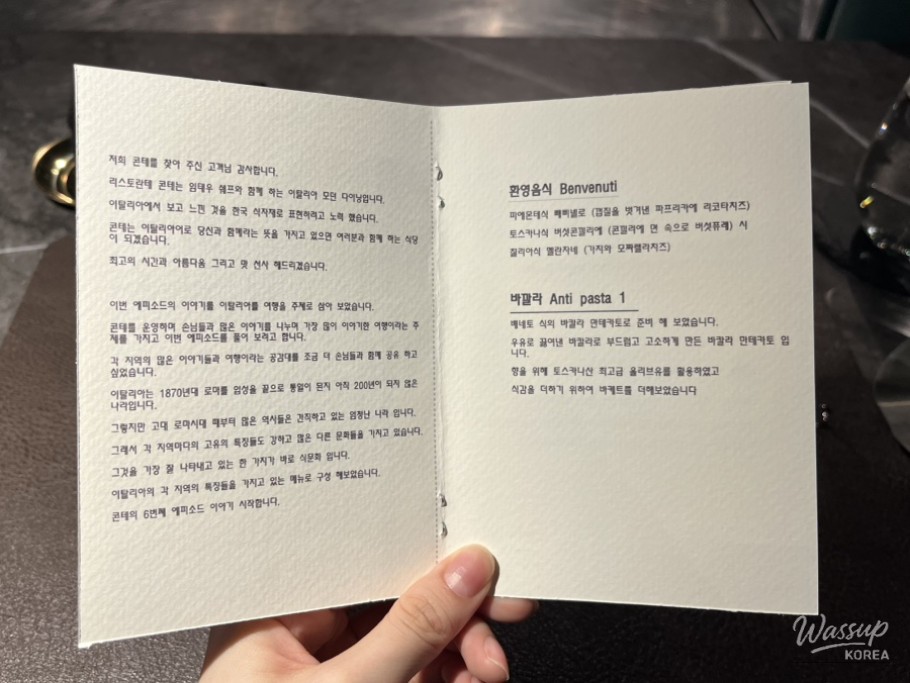 저희 콘테를 찾아 주신 고객님 감사합니다.
리스토란테 콘테는 임태우 쉐프와 함께 하는 이탈리아 모던 다이닝입니다.
이탈리아에서 보고 느낀 것을 한국 식자재로 표현하려고 노력 했습니다.
콘테는 이탈리아어로 당신과 함께라는 뜻을 가지고 있으면 여러분과 함께 하는 식당
이 되겠습니다.
최고의 시간과 아름다움 그리고 맛 선사 해드리겠습니다.
이번 에피소드의 이야기를 이탈리아를 여행을 주제로 삼아 보았습니다.
콘테를 운영하며 손님들과 많은 이야기를 나누며 가장 많이 이야기한 여행이라는 주
제를 가지고 이번 에피소드를 풀어 보려고 합니다.
각 지역의 많은 이야기들과 여행이라는 공감대를 조금 더 손님들과 함께 공유 하고
싶었습니다.
이탈리아는 1870년대 로마를 입성을 끝으로 통일이 된지 아직 200년이 되지 않은
나라입니다.
그렇지만 고대 로마시대 때부터 많은 역사들은 간직하고 있는 엄청난 나라 입니다.
그래서 각 지역마다의 고유의 특징들도 강하고 많은 다른 문화들을 가지고 있습니다.
그것을 가장 잘 나타내고 있는 한 가지가 바로 식문화 입니다.
이탈리아의 각 지역의 특징들을 가지고 있는 메뉴로 구성 해보았습니다.
콘테의 6번째 에피소드 이야기 시작합니다.
환영음식 Benvenuti
피에몬테식 빼삐넬로 (껍질을 벗겨낸 파프리카에 리코타치즈)
토스카니식 버섯콘낄리에 (콘낄리에 면 속으로 버섯퓨레) 시
칠리아식 멜란자네 (가지와 모짜렐라치즈)
바깔라 Anti pasta 1
베네토 식의 바깔라 만테카토로 준비 해 보았습니다.
우유로 끓여낸 바깔라로 부드럽고 고소하게 만든 바깔라 만테카토 입
니다.
향을 위해 토스카니산 최고급 올리브유를 활용하였고
식감을 더하기 위하여 바게트를 더해보았습니다
Wassup
KOREA